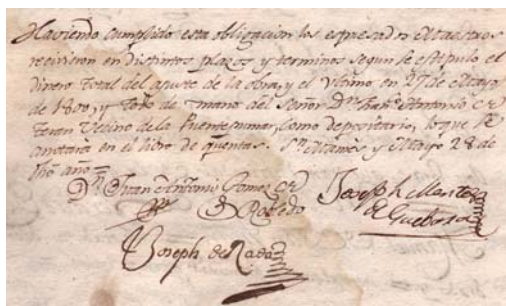 Haviendo cumplido esta obligacion los espresados Maestros
recivieron en distintos plazos y terminos segun se estipulo el
dinero total del ajuste de la obra, y el Vltimo en 27 de Mayo
de 1800, y todo de mano del Señor Dn. Antonio
Teran Vecino de la Puente, como depositario, lo que se
anotara en el libro de quentas. Sn. Mames y Mayo 28 de
dho año=
Dn. Juan Antonio Gomez
Joseph
de Robledo
Joseph de Rada